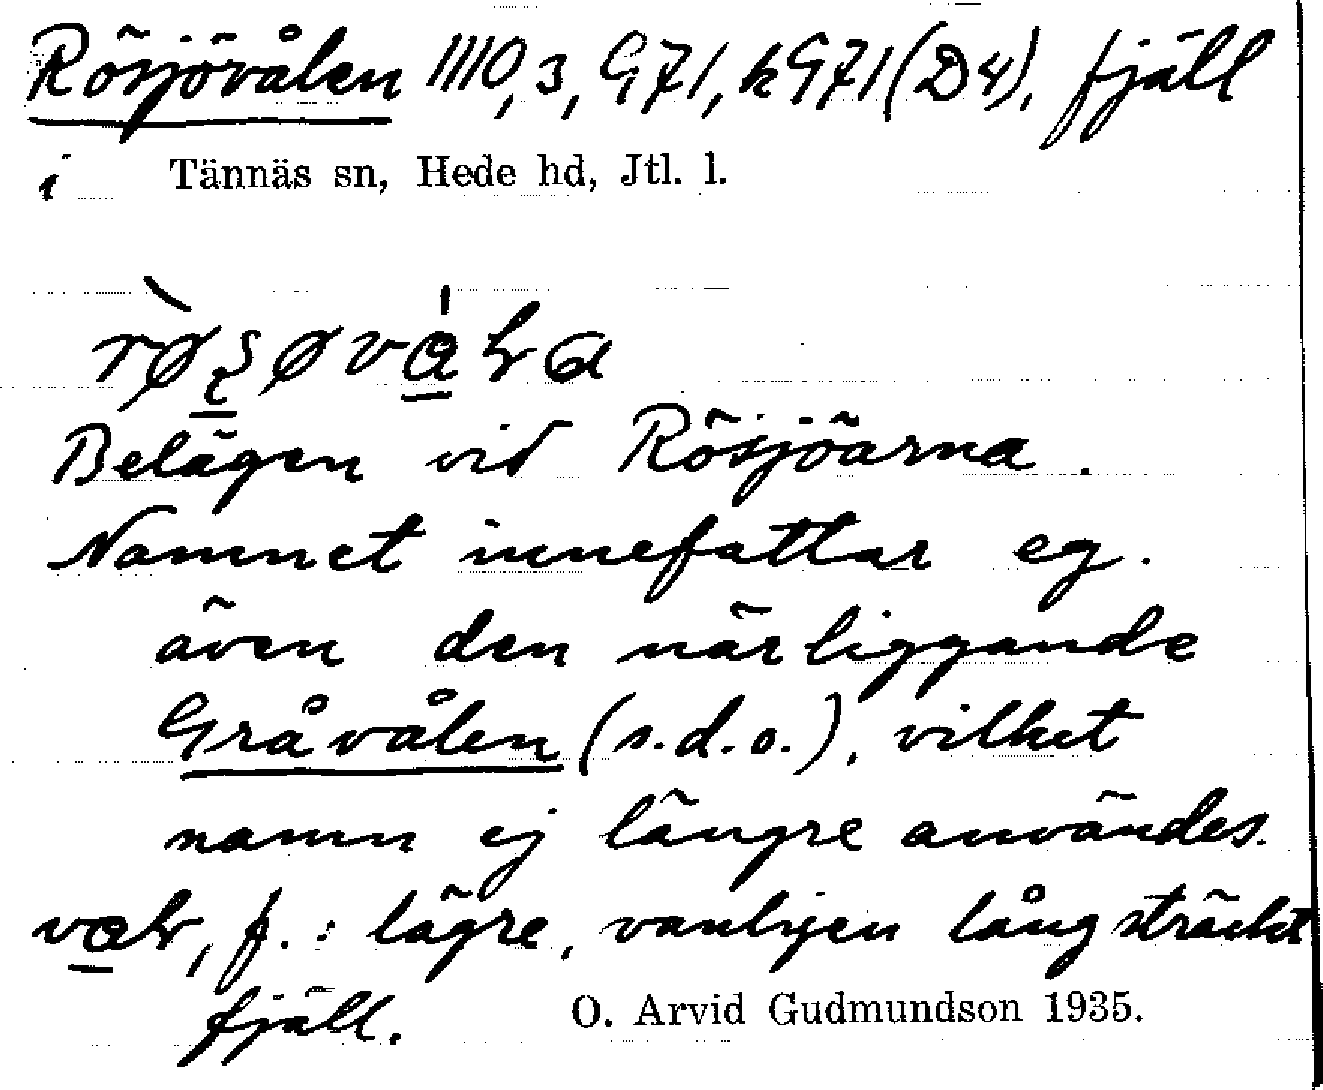 Rösjövålen 1110,3, G71, kG71(D4), fjäll
i Tännäs sn, Hede hd, Jtl. l.
Belägen vid Rösjöarna.
Namnet innefattar eg.
även den närliggande
Gråvålen (s.d.o.), vilket
namn ej längre användes.
f.: lägre, vanligen långsträckt
fjäll. O. Arvid Gudmundson 1935.